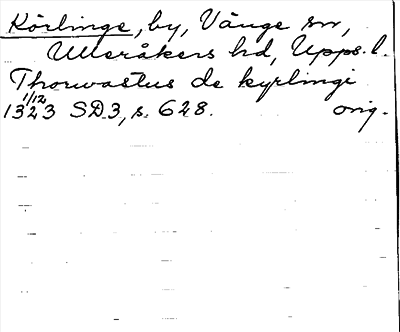 Körlinge, by, Vänge sn,
Ulleråkers hd, Upps. l.
Thorwastus de kyrlingi
1323 1/12 SD3, s. 628. orig.